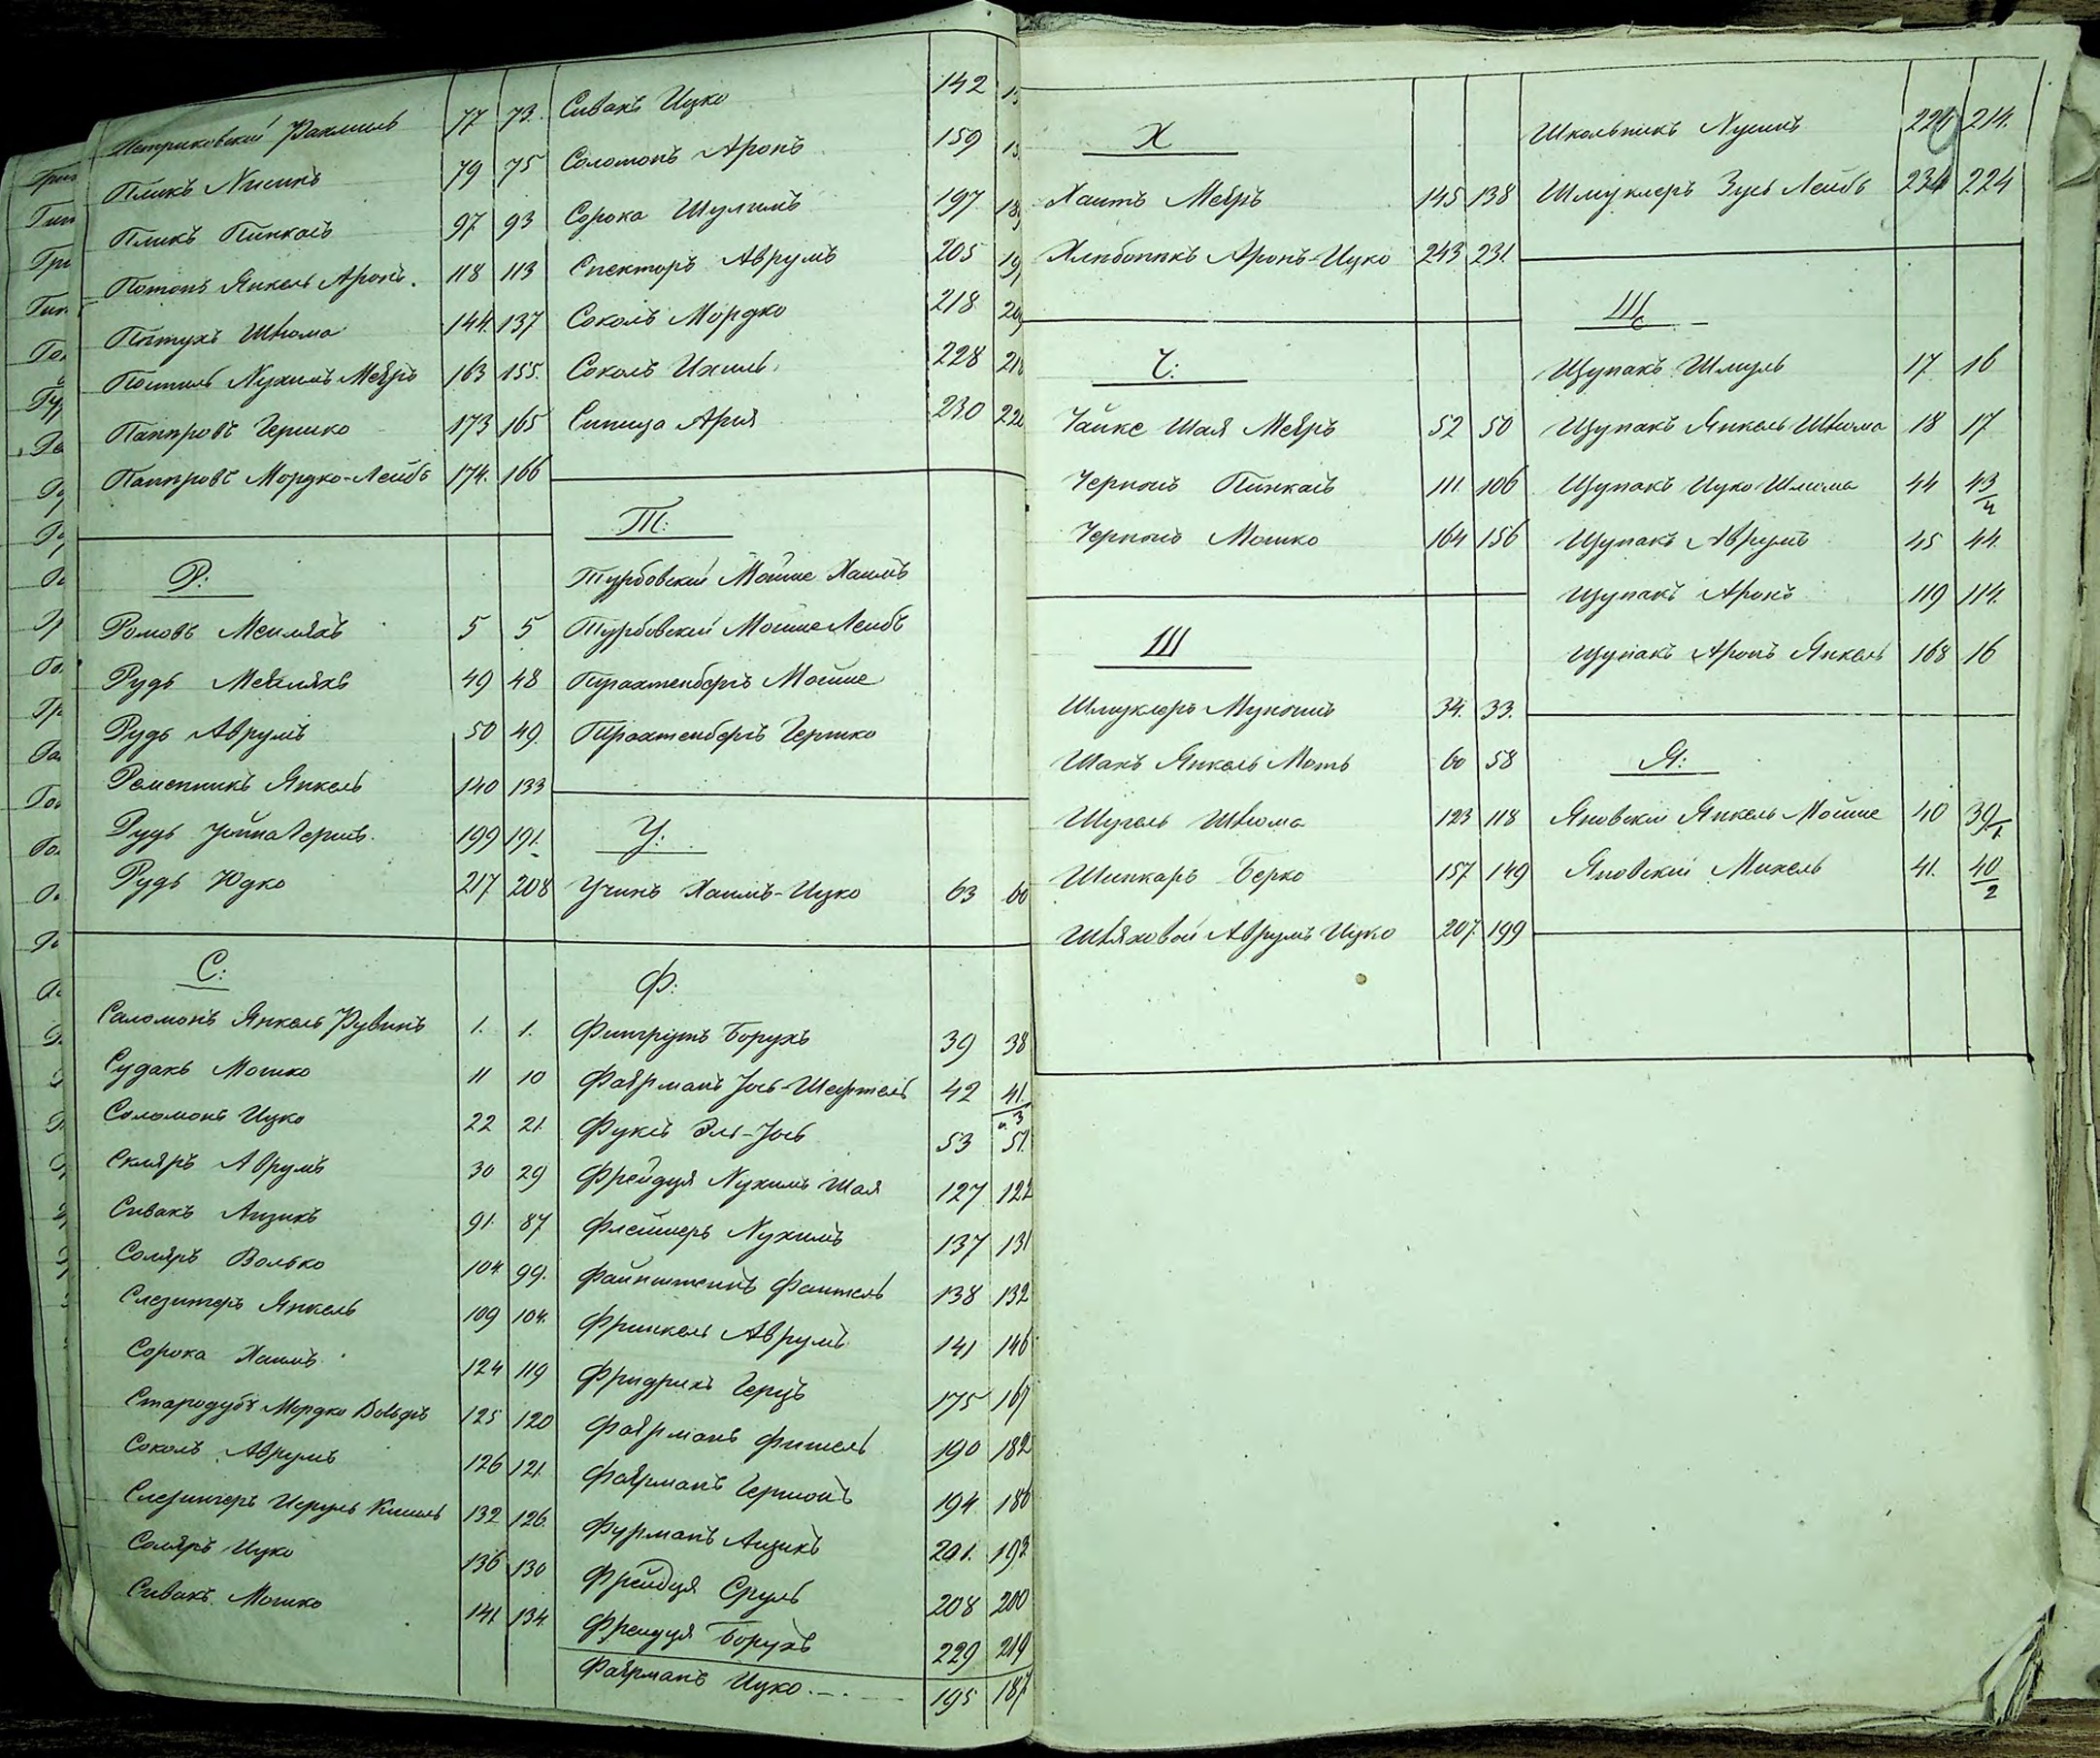 Петриковскій Рахмиль 77 73.
Пликъ Нисинъ 79 75
Пликъ Пинкасъ 97 93
Потокъ Янкель Аронъ. 118 113
Пѣтухъ Шлома 144. 137
Постиль Нухимъ Меѣръ 163 155.
Паппровъ Гершко 173 165
Паппровъ Мордко-Лейбъ 174. 166
Р:
Ромовъ Меиляхъ 5 5
Рудь Меиляхъ 49 48
Рудь Аврумъ 50 49.
Ременникъ Янкель 140 133
Рудь Гершъ. 199 191.
Рудь Юдко 217 208
С:
Саломонъ Янкель Рувинъ 1. 1.
Судакъ Мошко 11 10
Соломонъ Ицко 22 21.
Скляръ Аврумъ 30 29
Сивакъ Аизикъ 91. 87
Соляръ Волько 104 99.
Слезингеръ Янкель 109 104.
Сорока Хаимъ 124 119
Стародубъ Мордко 125 120
Соколъ Аврумъ 126 121.
Слезингеръ Исруль Кисиль 132 126.
Соляръ Ицко 136 130
Сивакъ Мошко 141. 134.
Сивакъ Ицко 142
Соломонъ Аронъ 159
Сорока Шулимъ 197
Спекторъ Аврумъ 205
Соколъ Мордко 218
Соколъ Ихиль 228
Синица Арія 230
Т:
Турбовскій Мойше Хаимъ
Турбовскій Мойше Лейбъ
Трахтенбергъ Мойше
Трахтенбергъ Гершко
У:
Учикъ Хаимъ-Ицко 63 60
Ф:
Фингрутъ Борухъ 39 38
Фаѣрманъ Іось-Шефтель 42 41. 3
Фуксъ Эль-Іось 53 51.
Фрейдзя Нухимъ Шая 127 122
Флейшеръ Нухимъ 137 131
Файнштейнъ Файтель 138 132
Фринкель Аврумъ 141 146
Фридрихъ Герцъ 175 167
Фаѣрманъ Фишель 190 182
Фаѣрманъ Гершонъ 194 186
Фурманъ Аизикъ 201. 193
Фрейдзя Сруль 208 200
Фрейдзя Борухъ 229 219
Фаѣрманъ Ицко 195 187
Х
Хаитъ Меѣръ 145 138
Хлѣбоникъ Аронъ-Ицко 243 231.
Ч:
Чайке Шая Меѣръ 52 50
Черномъ Пинкасъ 111. 106
Черномъ Мошко 164 156
Ш
Шмуклеръ 34. 33.
Шакъ Янкель Моть 60 58
Шугель Шлома 123 118
Шинкаръ Берко 157 149
Шляховой Аврумъ Ицко 207. 199
Школьникъ Нусинъ 214.
Шмуклеръ Зусь Лейбъ 234 224
Щ
Щупакъ Шмуль 17. 16
Щупакъ Янкель Шлома 18 17
Щупакъ Ицко Шлима 44 43 4
Щупакъ Аврумъ 45 44.
Щупакъ Аронъ 119 114.
Щупакъ Аронъ Янкель 168 16
Я:
Яновскій Янкель Мойше 40 39. 1.
Яновскій Михель 41. 40 2